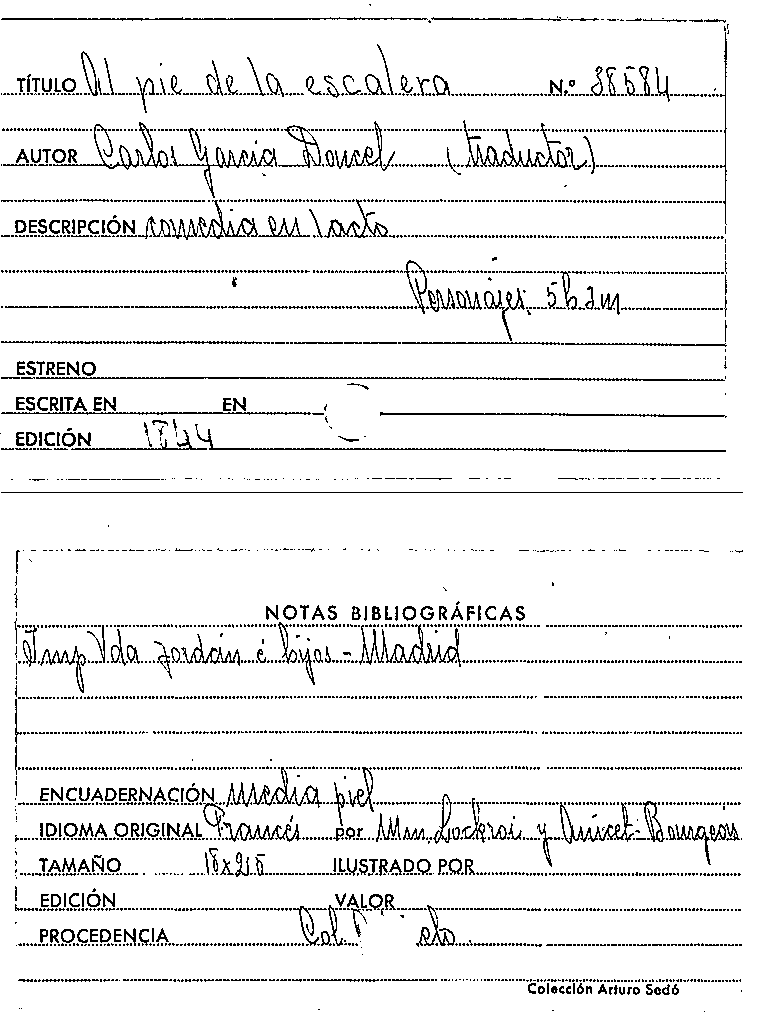 TÍTULO Al pie de la escalera N.º 38584
AUTOR Carlos García Doncel (traductor)
DESCRIPCIÓN comedia en 1 acto
Personajes: 5h 2m
ESTRENO
ESCRITA EN EN
EDICIÓN 1844
NOTAS BIBLIOGRÁFICAS
Imp Vda Jordán é hijos - Madrid
ENCUADERNACIÓN Media piel
IDIOMA ORIGINAL Francés por Mm. Lockroi y Anicet-Bourgeois
TAMAÑO ILUSTRADO POR
EDICIÓN VALOR
PROCEDENCIA Col.
Colección Arturo Sedó